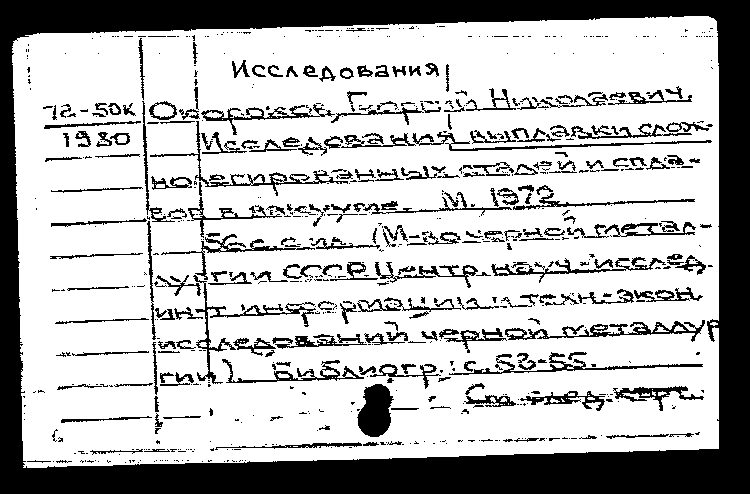 Исследования
72-50к Окороков, Георгий Николаевич.
1980 Исследования выплавки слож-
нолегированных сталей и спла-
вов в вакууме. М., 1972.
56 с. с ил. (М-во черной метал-
лургии СССР. Центр. науч.-исслед.
ин-т информации и техн.-экон.
исследований черной металлур
гии). Библиогр.: с. 53-55.
См. след. карт.